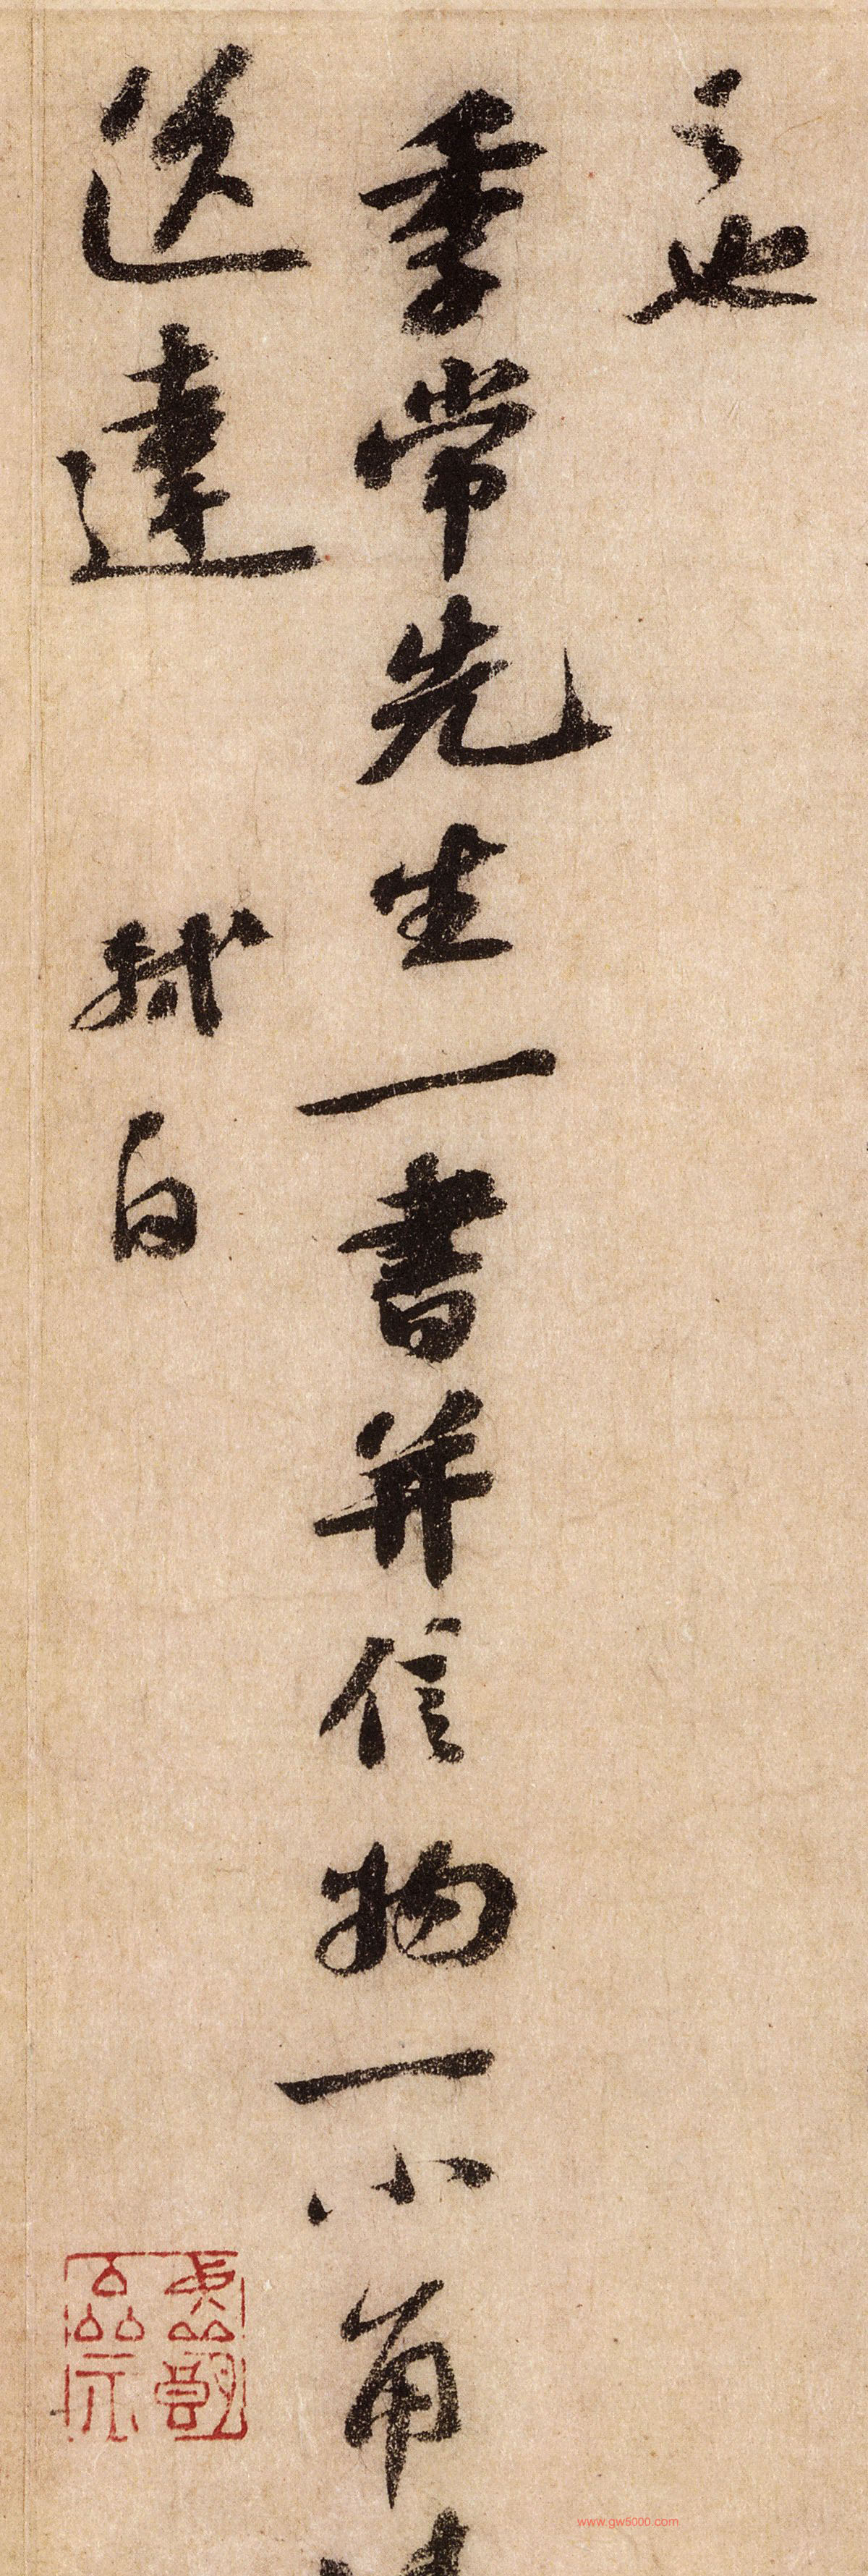 之也
季常先生一書并信物一小角請
送達　軾白
www.gw5000.com